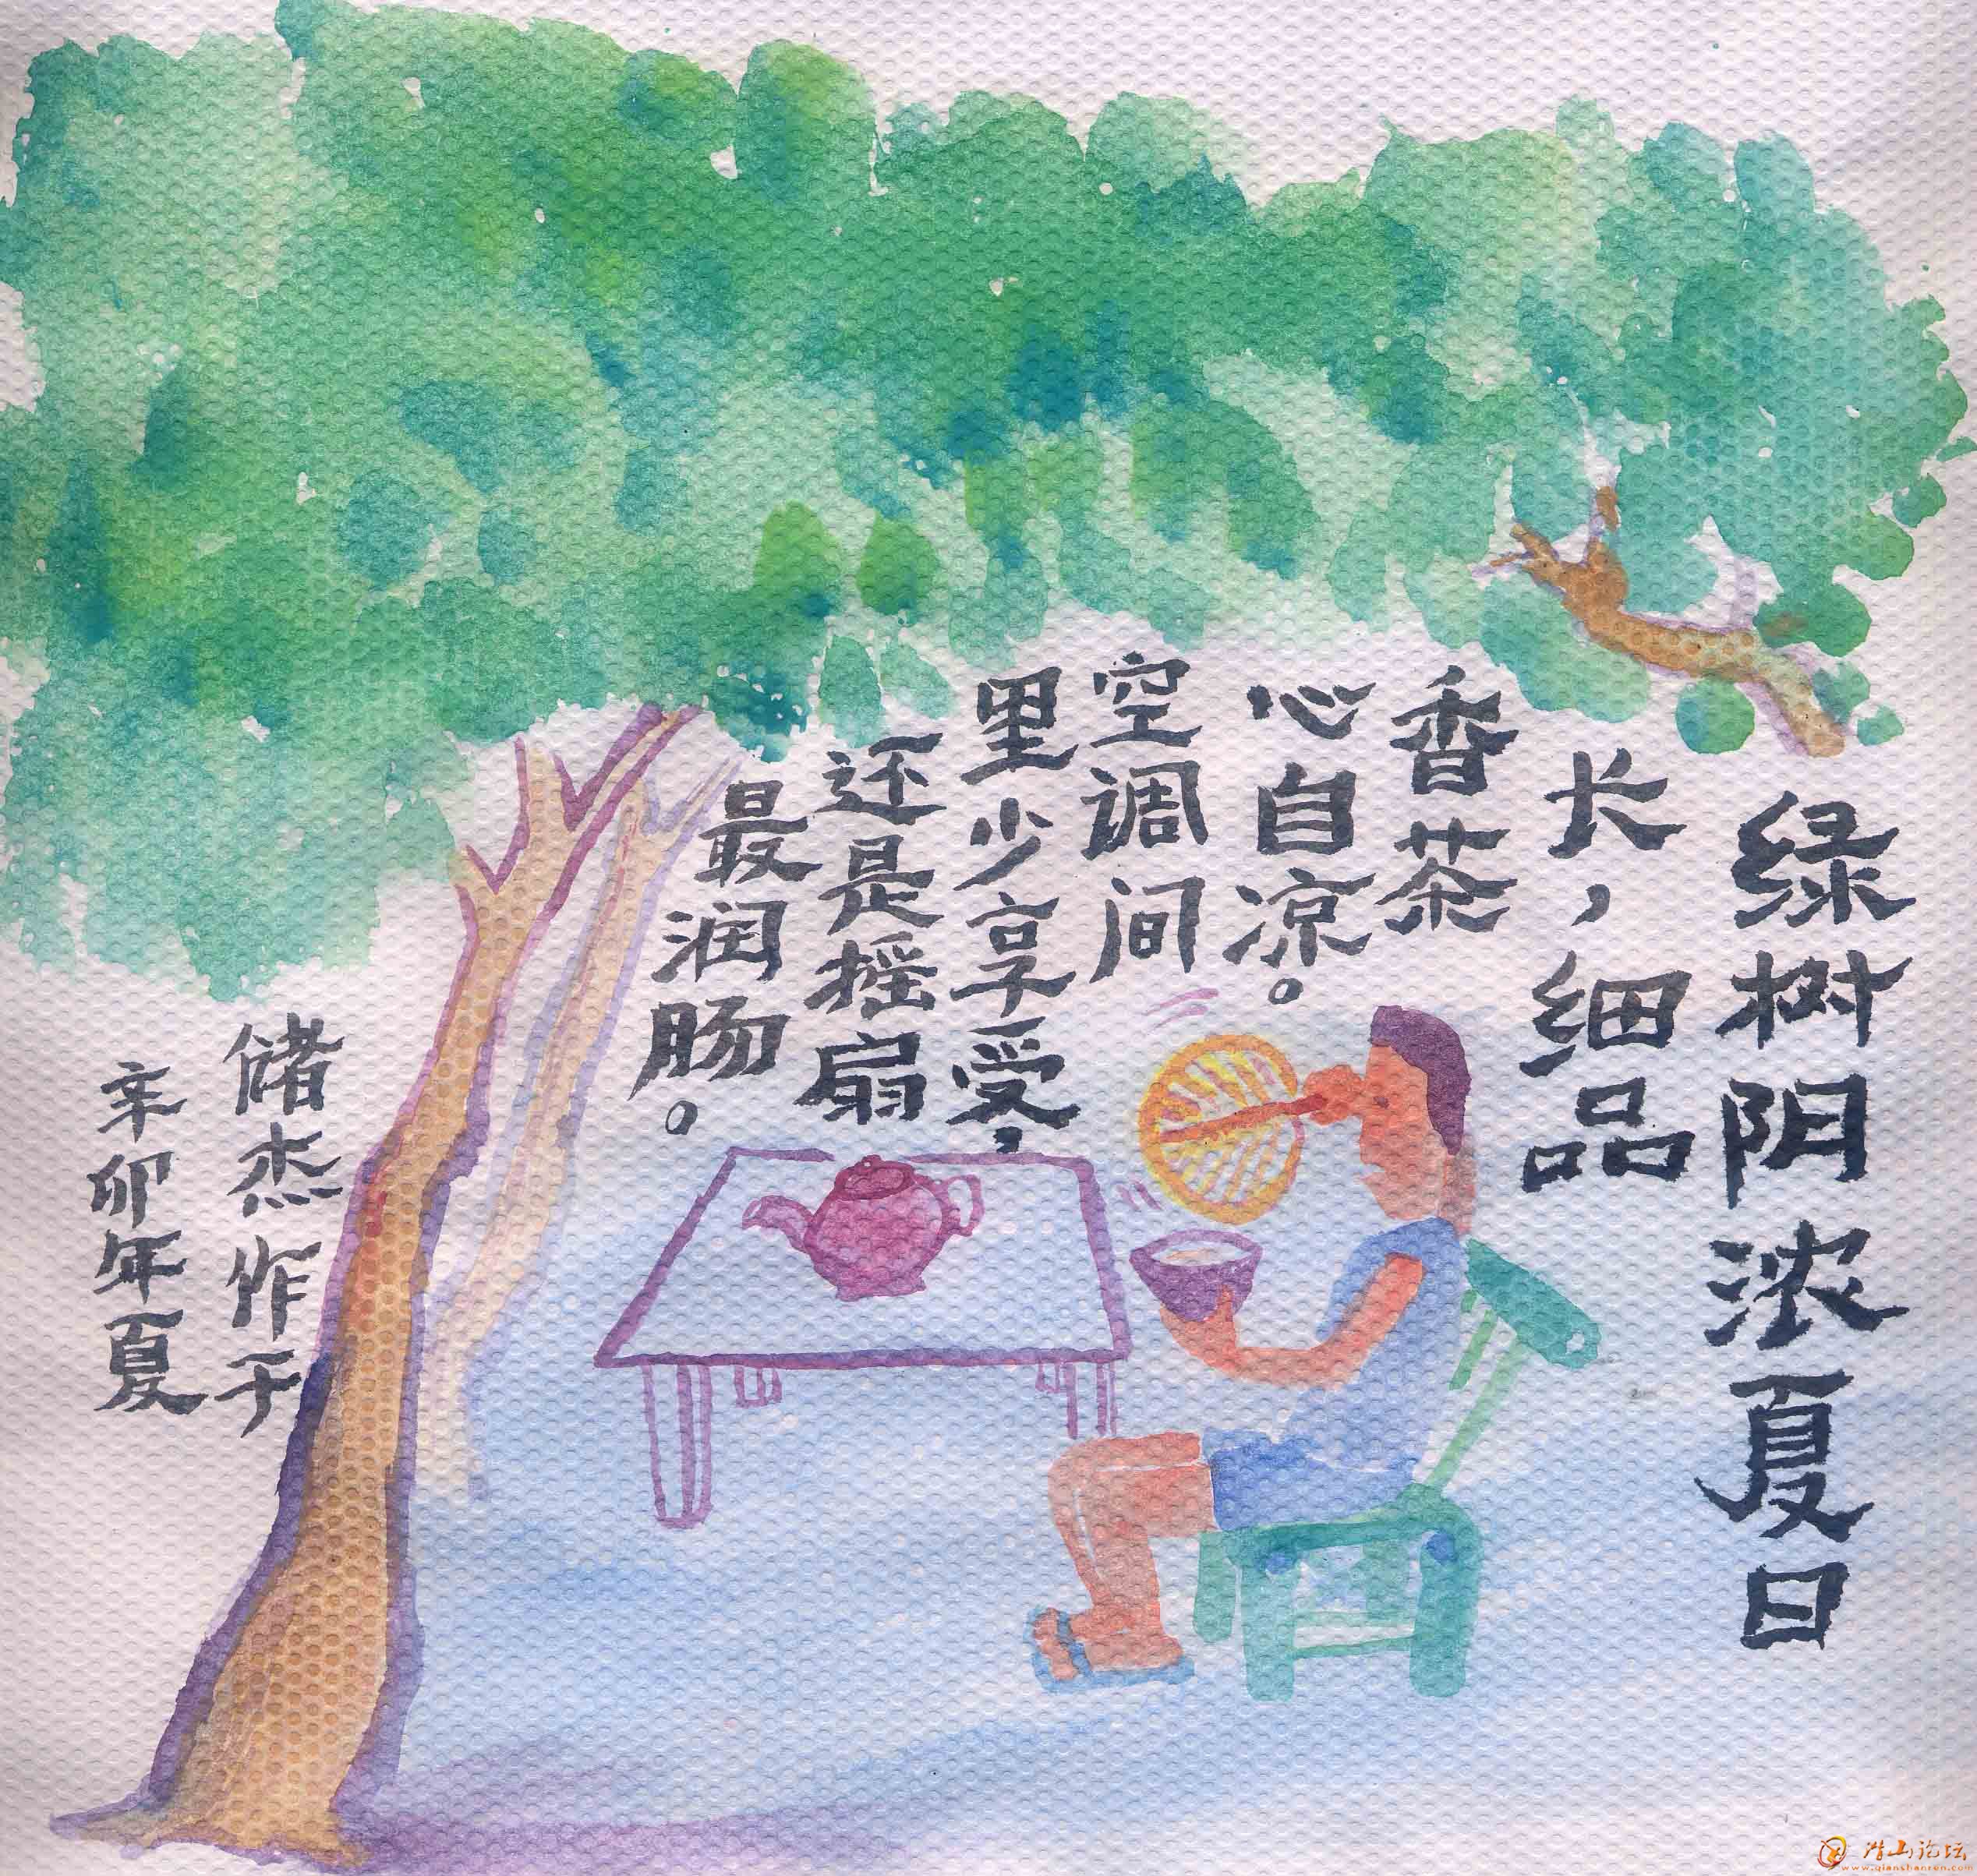 绿树阴浓夏日
长，细品
香茶
心自凉。
空调间
里少享受，
还是摇扇
最润肠。
储杰作于
辛卯年夏
潜山论坛
www.qianshanren.com